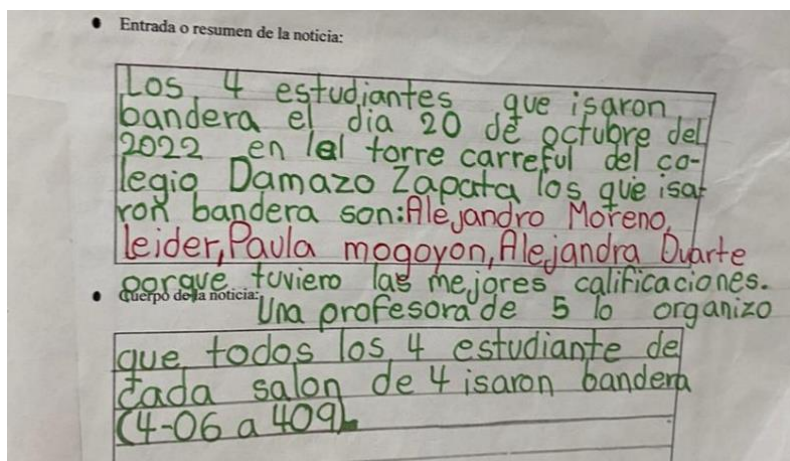 Entrada o resumen de la noticia:
Los 4 estudiantes que isaron
bandera el dia 20 de octubre del
2022 en lel torre carreful del co-
legio Damazo Zapata los que isa-
ron bandera son: Alejandro Moreno,
leider, Paula mogoyon, Alejandra Duarte
porque tuviero las mejores calificaciones.
Cuerpo de la noticia: Una profesora de 5 lo organizo
que todos los 4 estudiante de
cada salon de 4 isaron bandera
(4-06 a 409).